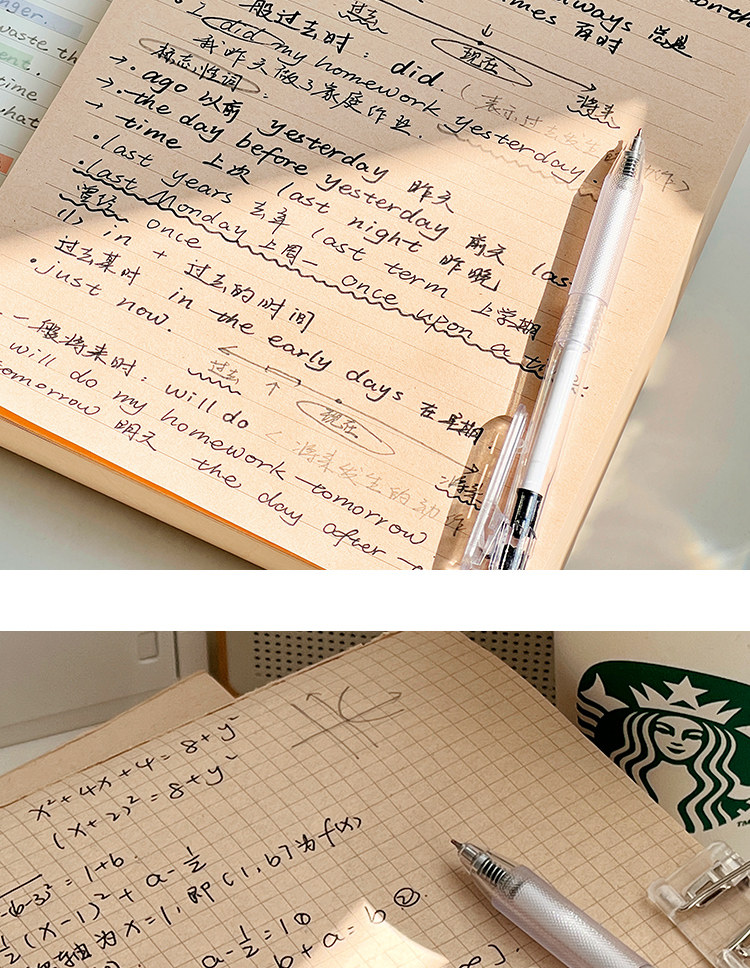 nger.
waste th
ent.
time
what
always 总是
times 有时
一般过去时： did.
过去 现在 将来
• I did my homework yesterday.
我昨天做了家庭作业.
标志性词：
→. ago 以前 yesterday 昨天
→. the day before yesterday 前天
→ time 上次 last night 昨晚
• last years 去年 last term 上学期
• last Monday 上周一 once upon a
曾经 once
(1) in + 过去的时间
过去某时 in the early days 在早期.
• just now.
一般将来时： will do
过去 现在 将来
< 将来发生的动作
will do my homework tomorrow
tomorrow 明天 the day after
x²+4x+4=8+y²
(x+2)²=8+y²
=1+b.
(x-1)²+a-½
轴为x=1, 即(1,b)为f(x)
a-½=1①
b+a=b②
8].
TM